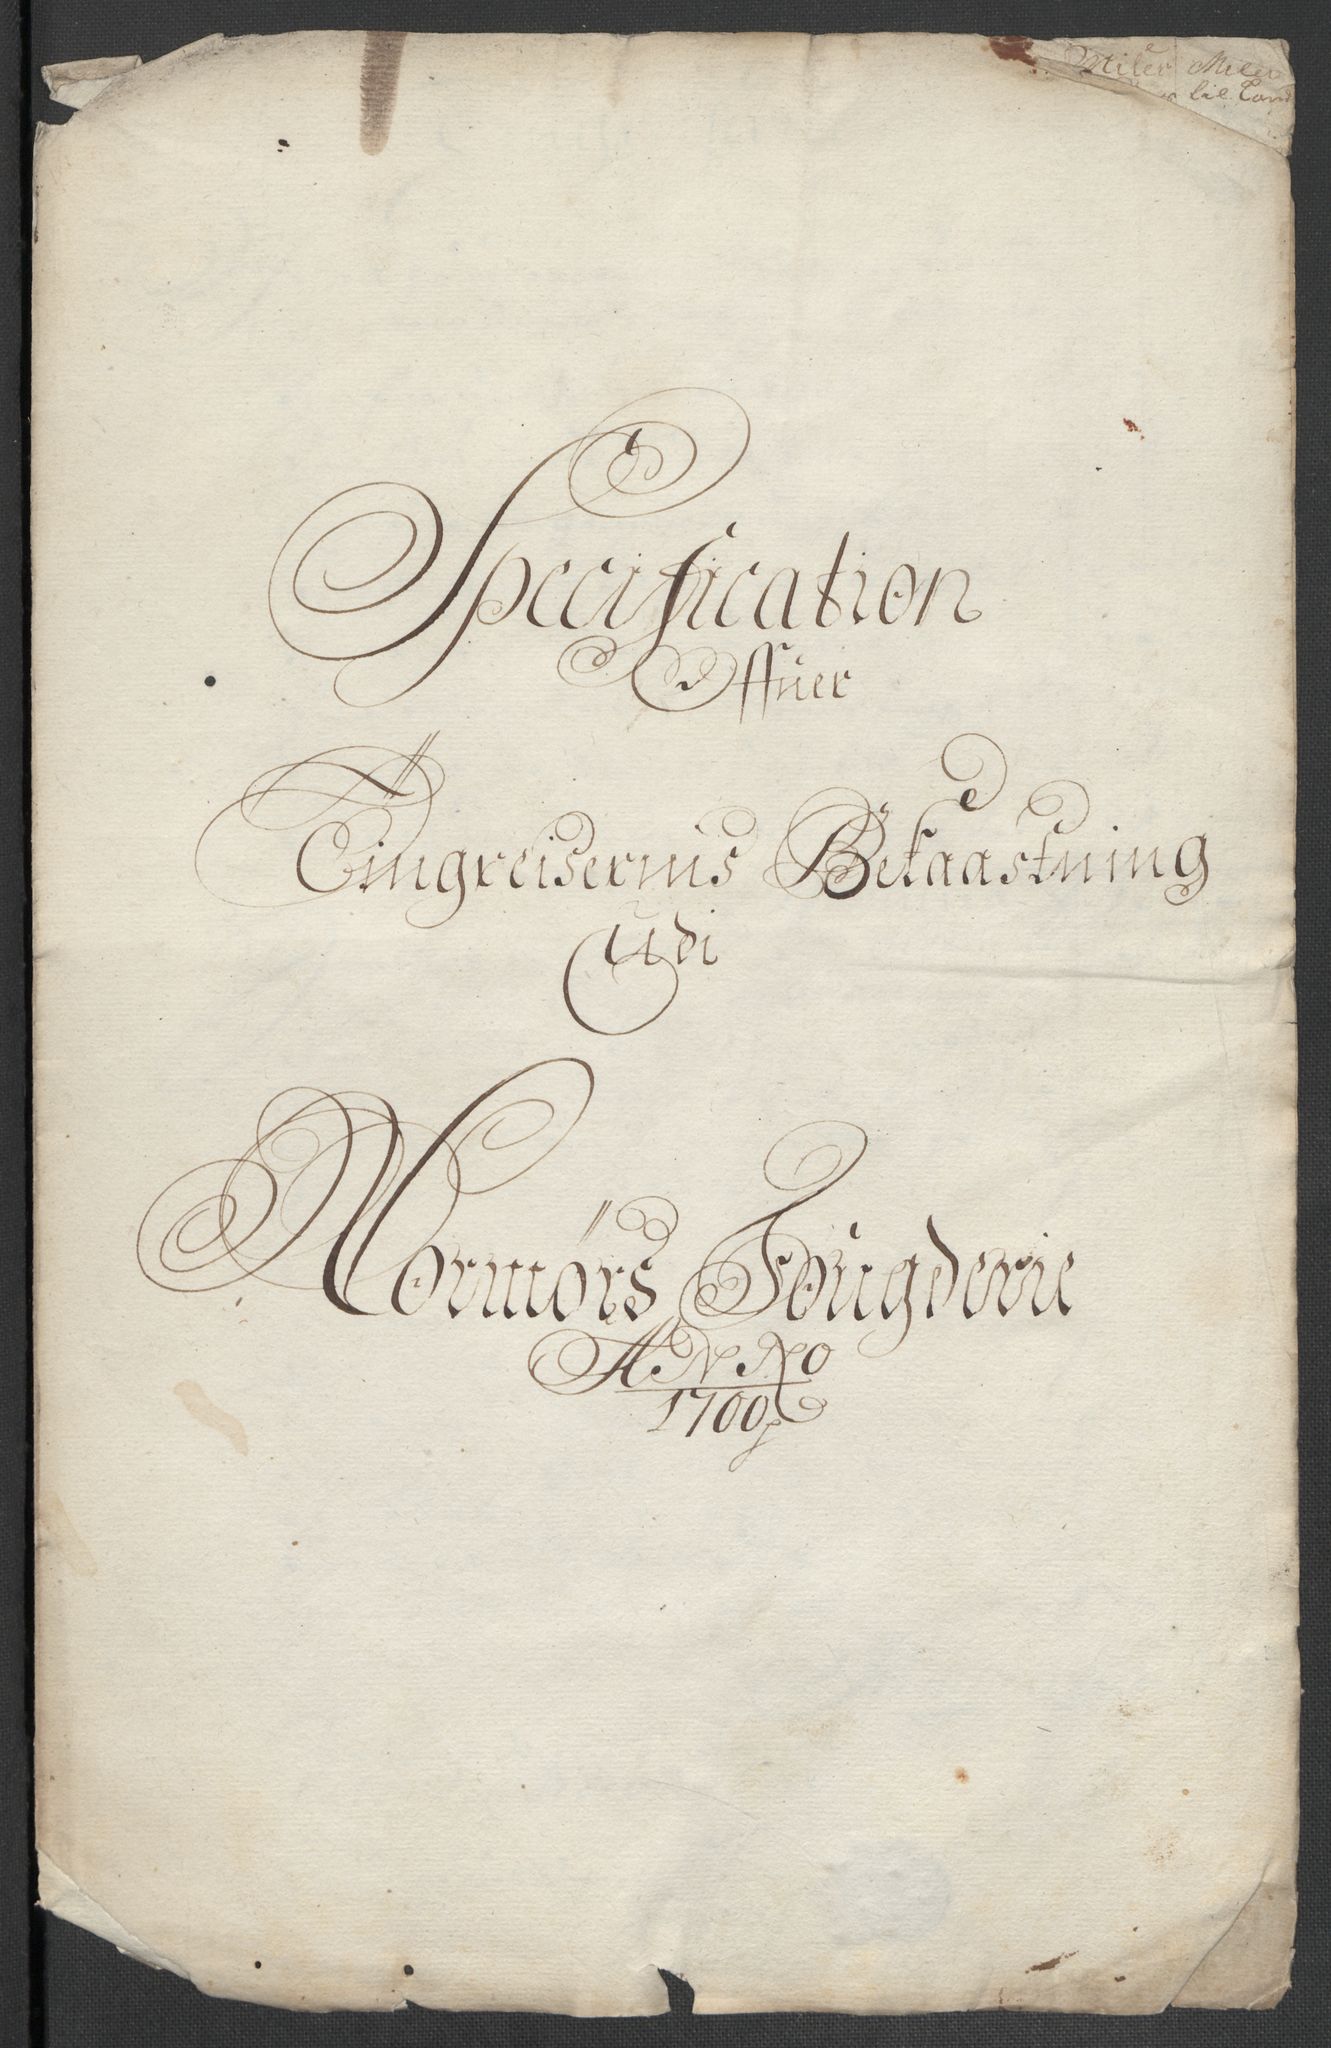 Miler Miler
til Land
Specification
Offuer
Tingreisernis Bekaastning
Udi
Normørs Fougderie
ANNO
1700